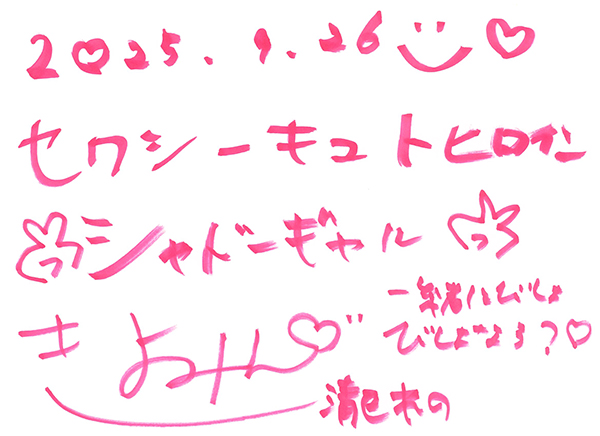 2025.9.26
セクシーキュートヒロイン
シャドーギャル
きよみん
一緒にびしょ
びしょなろう?
清巳れの